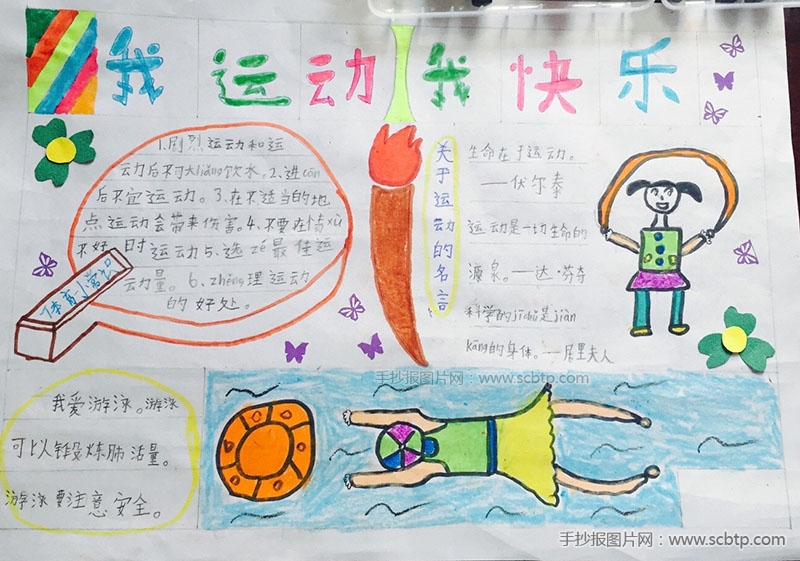 我运动我快乐
1.剧烈运动和运
动后不可大liàng饮水。2.进cān
后不宜运动。3.在不适当的地
点运动会带来伤害。4.不要在情xù
不好时运动5、选zé最佳运
动量。6、zhěng理运动
的好处。
体育小常识
关于运动的名言
生命在于运动。
——伏尔泰
运动是一切生命的
源泉。——达·芬奇
科学的jīchǔ是jiàn
kāng的身体。——居里夫人
手抄报图片网：www.scbtp.com
我爱游泳。游泳
可以锻炼肺活量。
游泳要注意安全。
手抄报图片网：www.scbtp.com